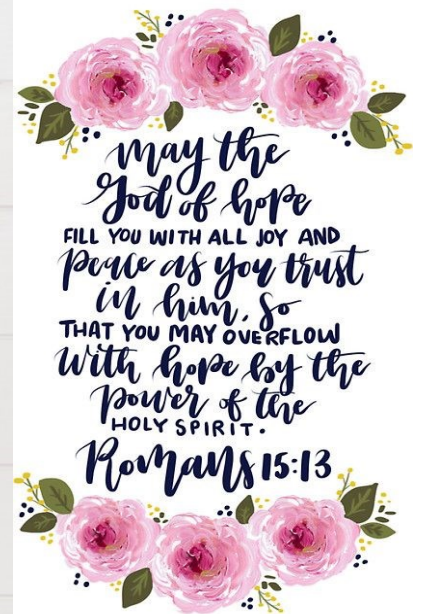 may the
God of hope
FILL YOU WITH ALL JOY AND
peace as you trust
in him, so
THAT YOU MAY OVERFLOW
with hope by the
power of the
HOLY SPIRIT.
Romans 15:13